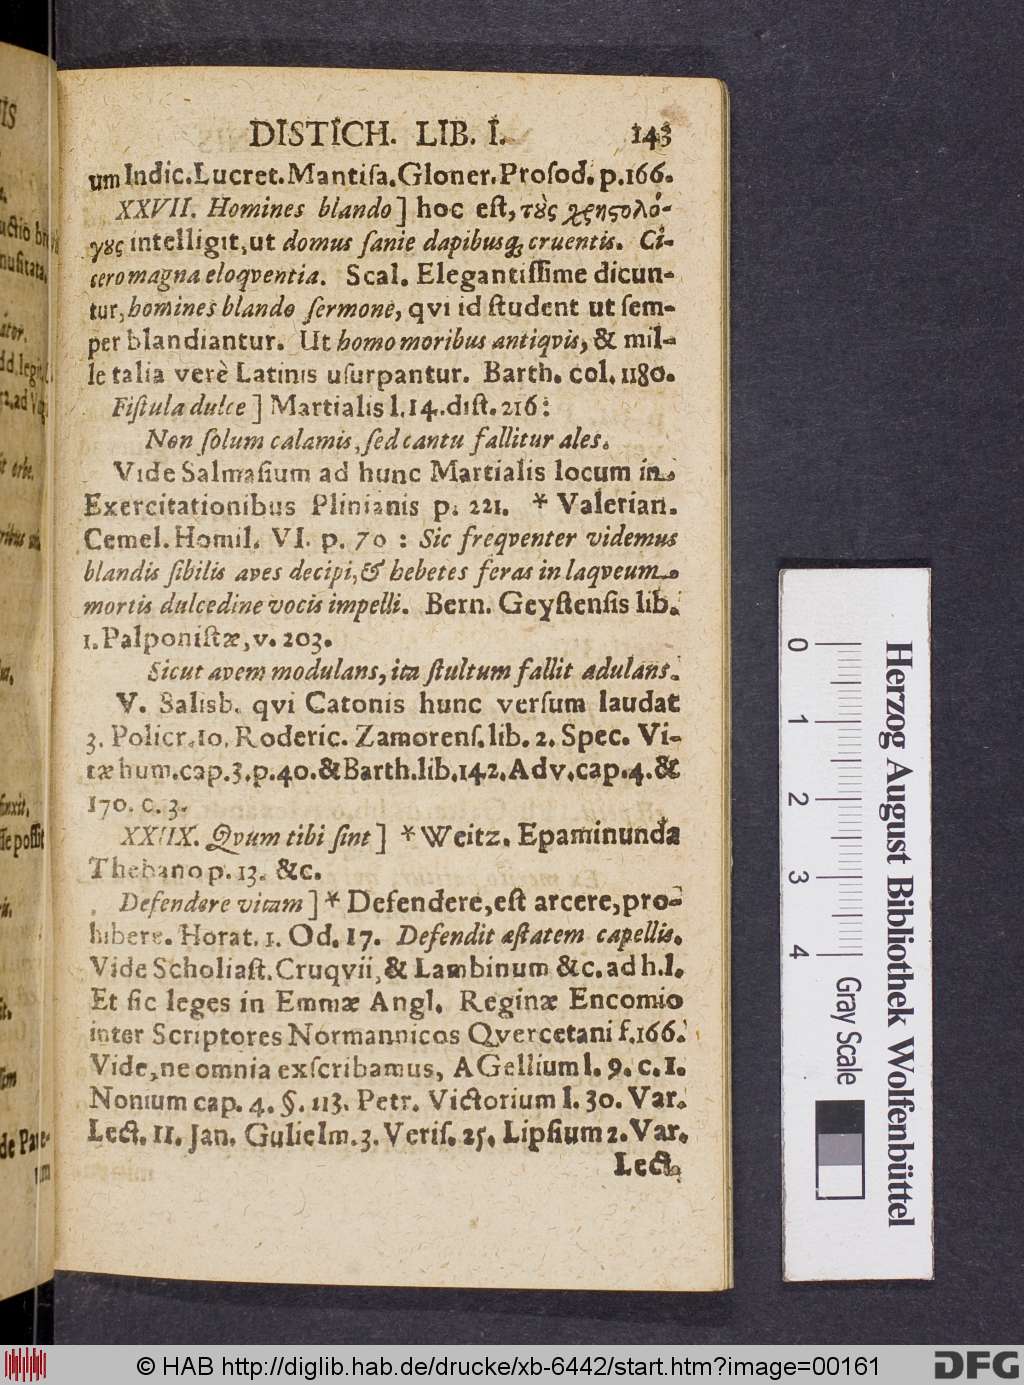 DISTICH. LIB. I. 143
um Indic. Lucret. Mantiſa. Gloner. Proſod. p. 166.
XXVII. Homines blando ] hoc eſt, τȣ̀ς χρηϛολό-
γȣς intelligit, ut domus ſanie dapibusq; cruentis. Ci-
cero magna eloqventia. Scal. Elegantiſſime dicun-
tur, homines blando ſermone, qvi id ſtudent ut ſem-
per blandiantur. Ut homo moribus antiqvis, & mil-
le talia verè Latinis uſurpantur. Barth. col. 1180.
Fiſtula dulce ] Martialis l. 14. diſt. 216:
Non ſolum calamis, ſed cantu fallitur ales.
Vide Salmaſium ad hunc Martialis locum in
Exercitationibus Plinianis p. 221. * Valerian.
Cemel. Homil. VI. p. 70 : Sic freqventer videmus
blandis ſibilis aves decipi, & hebetes feras in laqveum
mortis dulcedine vocis impelli. Bern. Geyſtenſis lib.
1. Palponiſtæ, v. 203.
Sicut avem modulans, ita ſtultum fallit adulans.
V. Salisb. qvi Catonis hunc verſum laudat
3. Policr. 10. Roderic. Zamorenſ. lib. 2. Spec. Vi-
tæ hum. cap. 3. p. 40. & Barth. lib. 142. Adv. cap. 4. &
170. c. 3.
XXIIX. Qvum tibi ſint ] * Weitz. Epaminunda
Thebano p. 13. &c.
Defendere vitam ] * Defendere, eſt arcere, pro-
hibere. Horat. 1. Od. 17. Defendit æſtatem capellis.
Vide Scholiaſt. Cruqvii, & Lambinum &c. ad h. l.
Et ſic leges in Emmæ Angl. Reginæ Encomio
inter Scriptores Normannicos Qvercetani f. 166.
Vide, ne omnia exſcribamus, A Gellium l. 9. c. 1.
Nonium cap. 4. §. 113. Petr. Victorium l. 30. Var.
Lect. 11. Jan. Gulielm. 3. Veriſ. 25. Lipſium 2. Var.
Lect.
0 1 2 3 4
Gray Scale
Herzog August Bibliothek Wolfenbüttel
© HAB http://diglib.hab.de/drucke/xb-6442/start.htm?image=00161
DFG